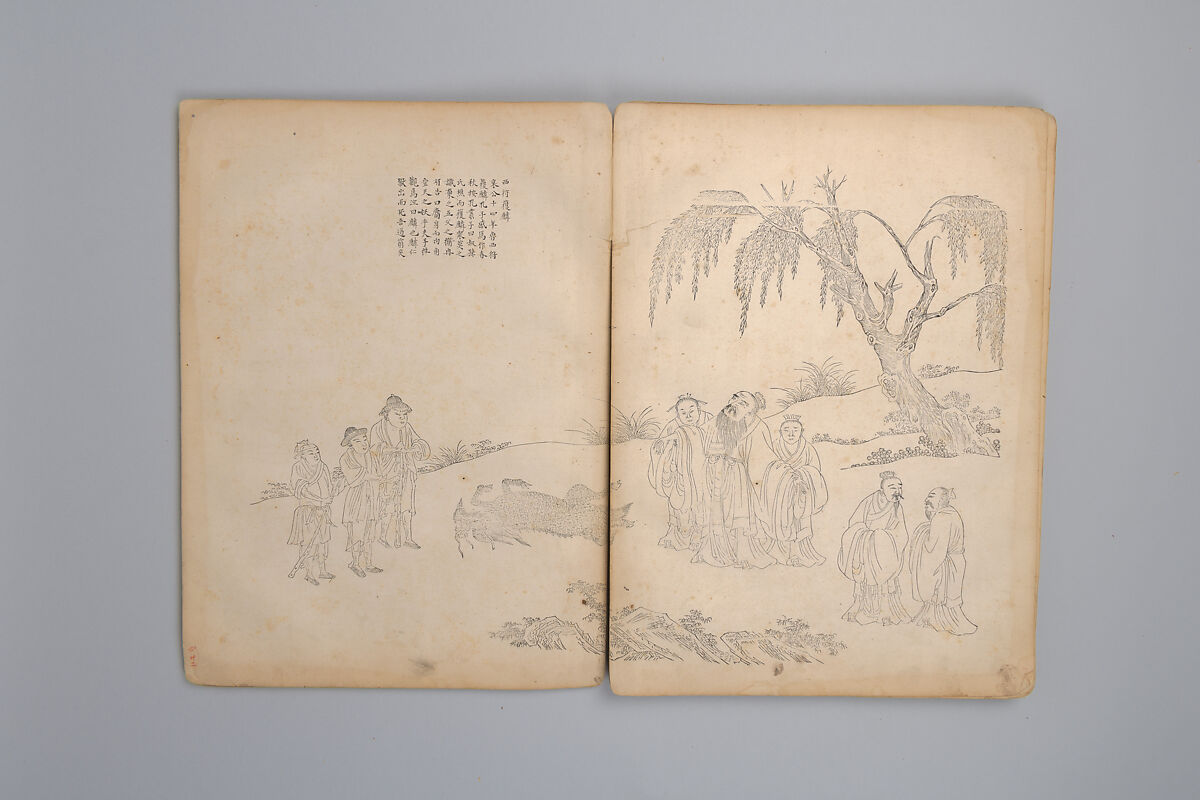 西狩獲麟
哀公十四年魯西狩
獲麟孔子感焉作春
秋按孔叢子曰叔孫
氏樵而獲麟眾莫之
識棄之五父之衢冉
有告曰麕身而肉角
豈天之妖乎夫子往
觀焉泣曰麟也麟仁
獸出而死吾道窮矣